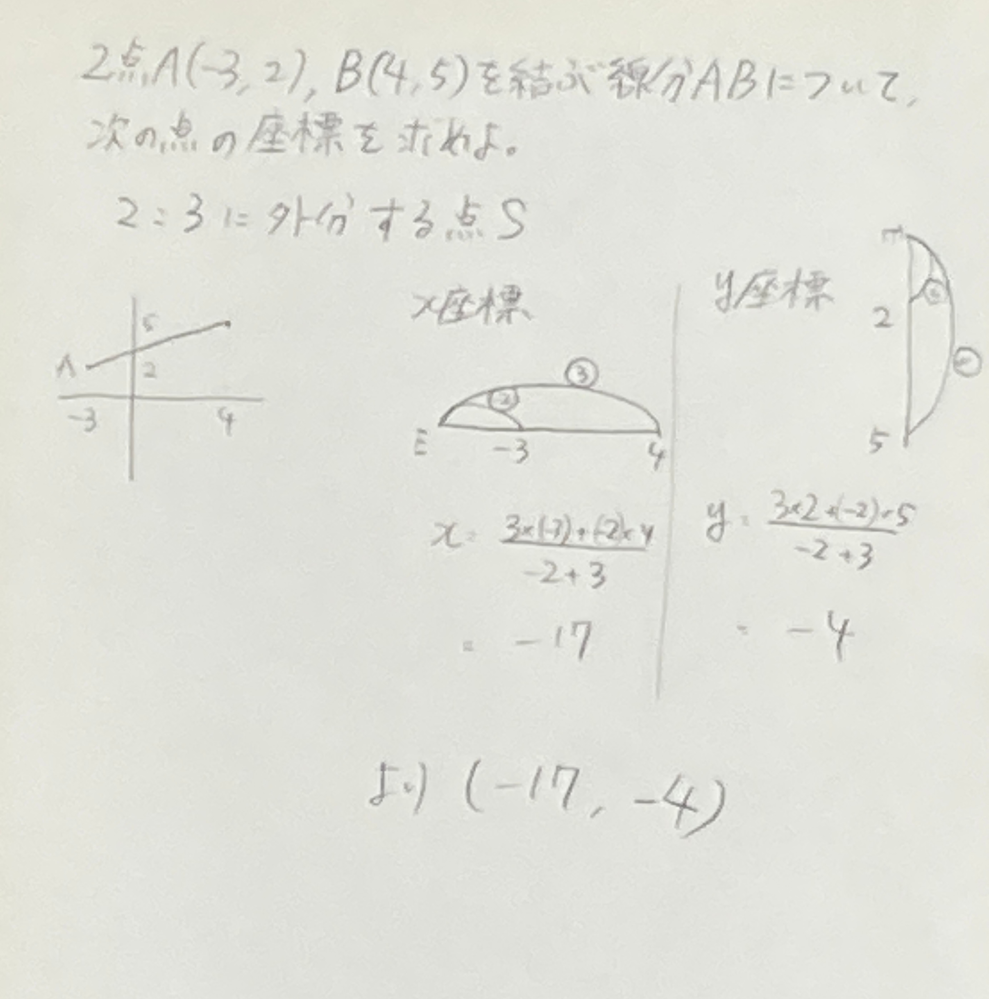 2点A(-3,2),B(4,5)を結ぶ線分ABについて,
次の点の座標を求めよ。
2:3に外分する点S
A
5
2
-3
4
x座標
③
-3
4
x= 3×(-3)+(-2)×4
-2+3
= -17
y座標
2
5
y= 3×2+(-2)×5
-2+3
= -4
より (-17,-4)